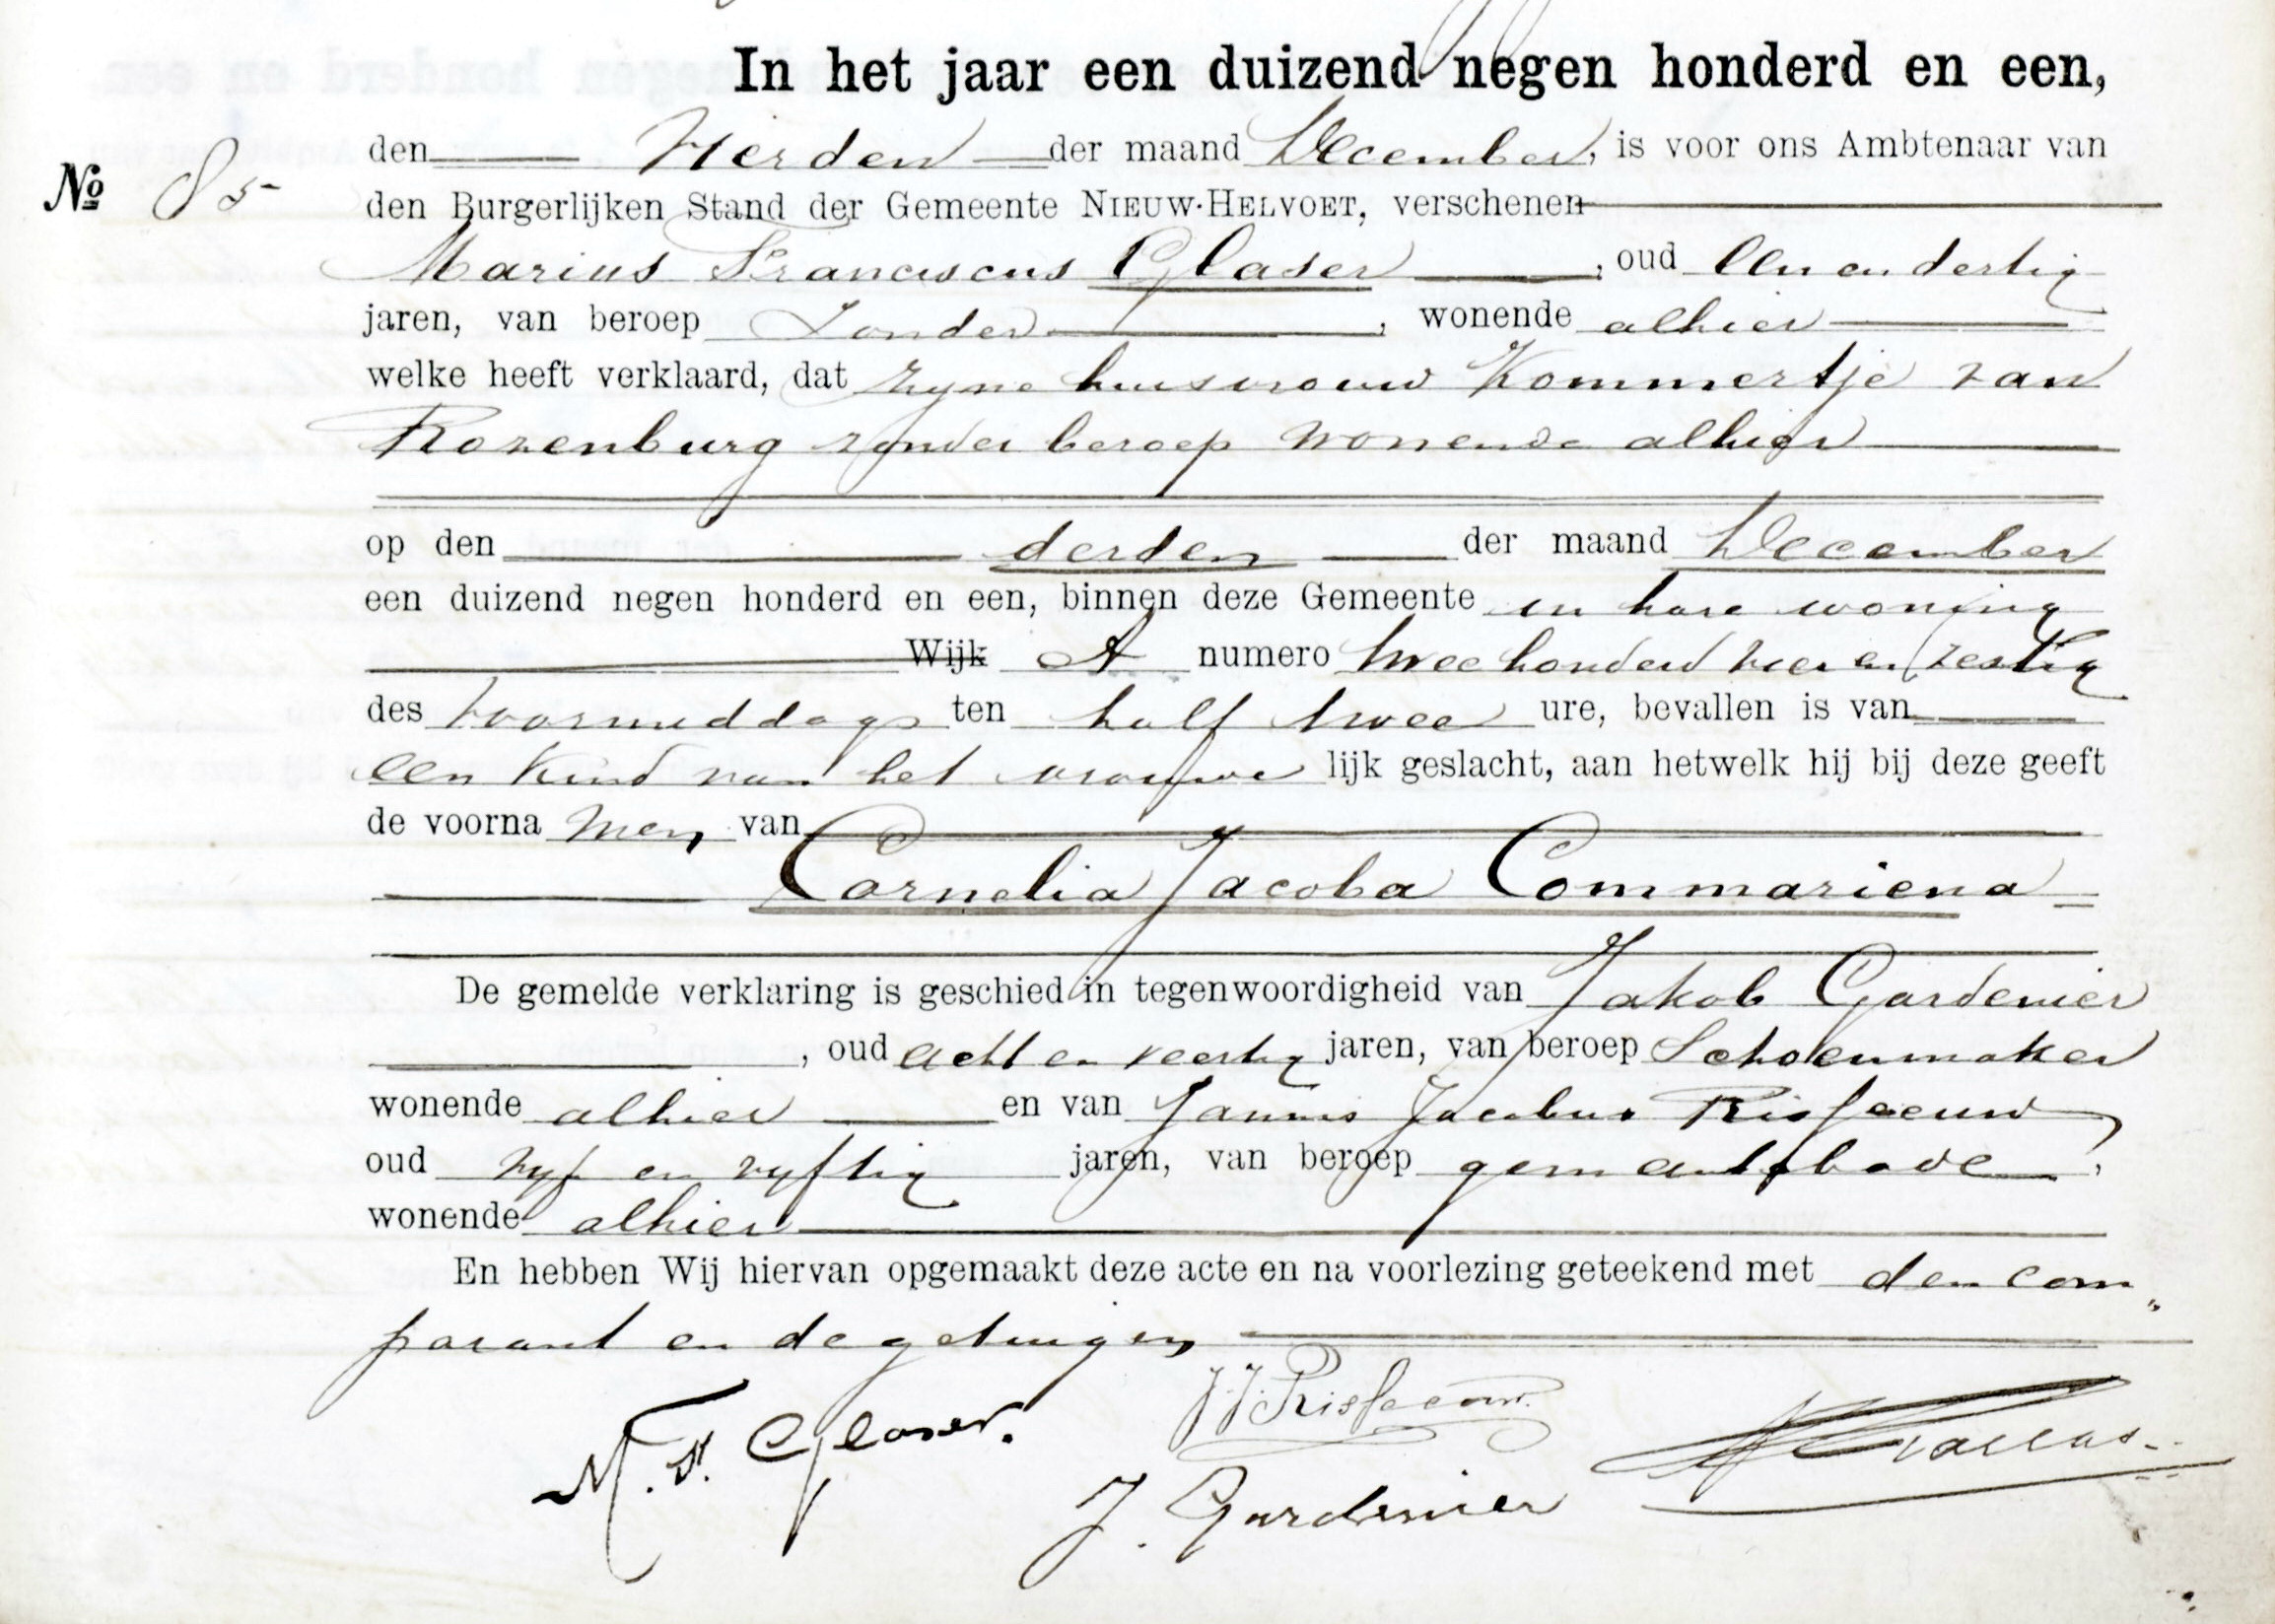 In het jaar een duizend negen honderd en een,
den Vierden der maand December, is voor ons Ambtenaar van
No 85 den Burgerlijken Stand der Gemeente NIEUW-HELVOET, verschenen
Marius Franciscus Glaser, oud Een en dertig
jaren, van beroep Zonder, wonende alhier
welke heeft verklaard, dat zyne huisvrouw Kommertje van
Rozenburg zonder beroep wonende alhier
op den derden der maand December
een duizend negen honderd en een, binnen deze Gemeente in hare woning
Wijk A numero twee honderd vier en zestig
des voormiddags ten half twee ure, bevallen is van
een kind van het vrouwe lijk geslacht, aan hetwelk hij bij deze geeft
de voorna men van
Cornelia Jacoba Commariena
De gemelde verklaring is geschied in tegenwoordigheid van Jakob Gardenier
, oud acht en veertig jaren, van beroep Schoenmaker
wonende alhier en van Jannis Jacobus Risseeuw,
oud vyf en vyftig jaren, van beroep gemeentebode,
wonende alhier
En hebben Wij hiervan opgemaakt deze acte en na voorlezing geteekend met den com„
parant en de getuigen
M. F. Glaser.
J J Risseeuw.
J. Gardenier